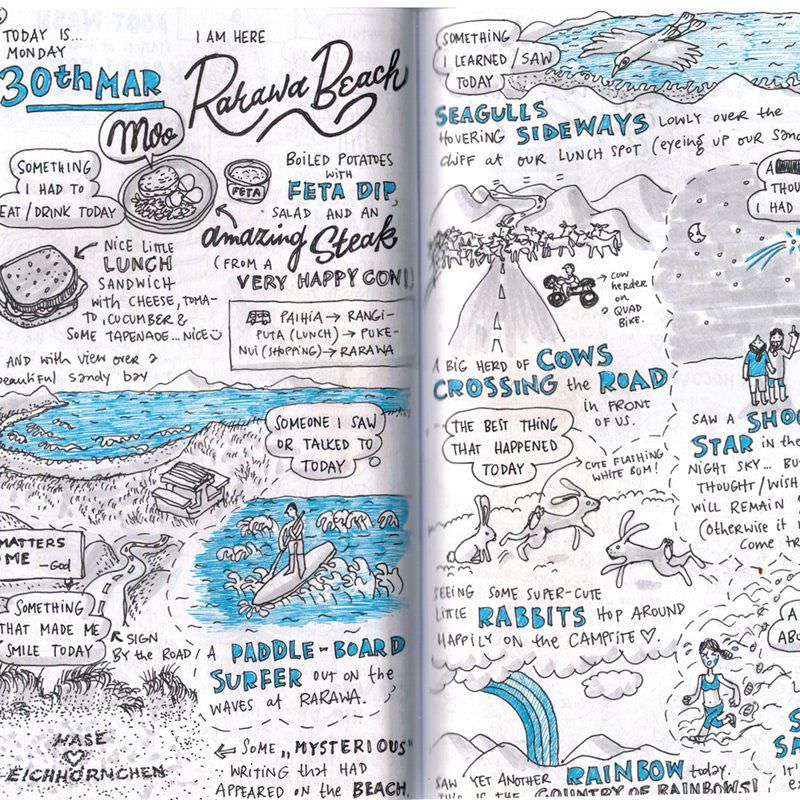 TODAY IS...
MONDAY
30th MAR
I AM HERE
Rarawa Beach
Moo
SOMETHING
I HAD TO
EAT / DRINK TODAY
FETA
BOILED POTATOES
with
FETA DIP,
SALAD AND AN
amazing Steak
(FROM A
VERY HAPPY COW!)
NICE LITTLE
LUNCH
SANDWICH
with CHEESE, TOMA-
TO, CUCUMBER &
SOME TAPENADE... NICE
AND with view over a
beautiful sandy bay
PAIHIA → RANGI-
PUTA (LUNCH) → PUKE-
NUI (SHOPPING) → RARAWA
SOMEONE I SAW
OR TALKED TO
TODAY
MATTERS
ME -God
SOMETHING
THAT MADE ME
SMILE TODAY
SIGN
BY the ROAD
A PADDLE-BOARD
SURFER OUT ON the
WAVES AT RARAWA.
HASE
♡
EICHHÖRNCHEN
← SOME „MYSTERIOUS"
WRITING that HAD
APPEARED ON the BEACH
SOMETHING
I LEARNED / SAW
TODAY
SEAGULLS
HOVERING SIDEWAYS LOWLY OVER the
CLIFF AT OUR LUNCH SPOT (EYEING UP OUR
→ COW
HERDER
ON
QUAD
BIKE.
A BIG HERD OF COWS
CROSSING the ROAD
IN FRONT
OF US.
THE BEST THING
THAT HAPPENED
TODAY
CUTE FLASHING
WHITE BUM!
SEEING SOME SUPER-CUTE
LITTLE RABBITS HOP AROUND
HAPPILY ON the CAMPSITE ♡.
SAW YET ANOTHER RAINBOW today.
THIS IS the COUNTRY OF RAINBOWS!
A
THOU
I HAD
SAW A SHOO
STAR in the
NIGHT SKY... BU
THOUGHT / WISH
WILL REMAIN
(OTHERWISE it
COME TR
A
ABO
S
SA
It's